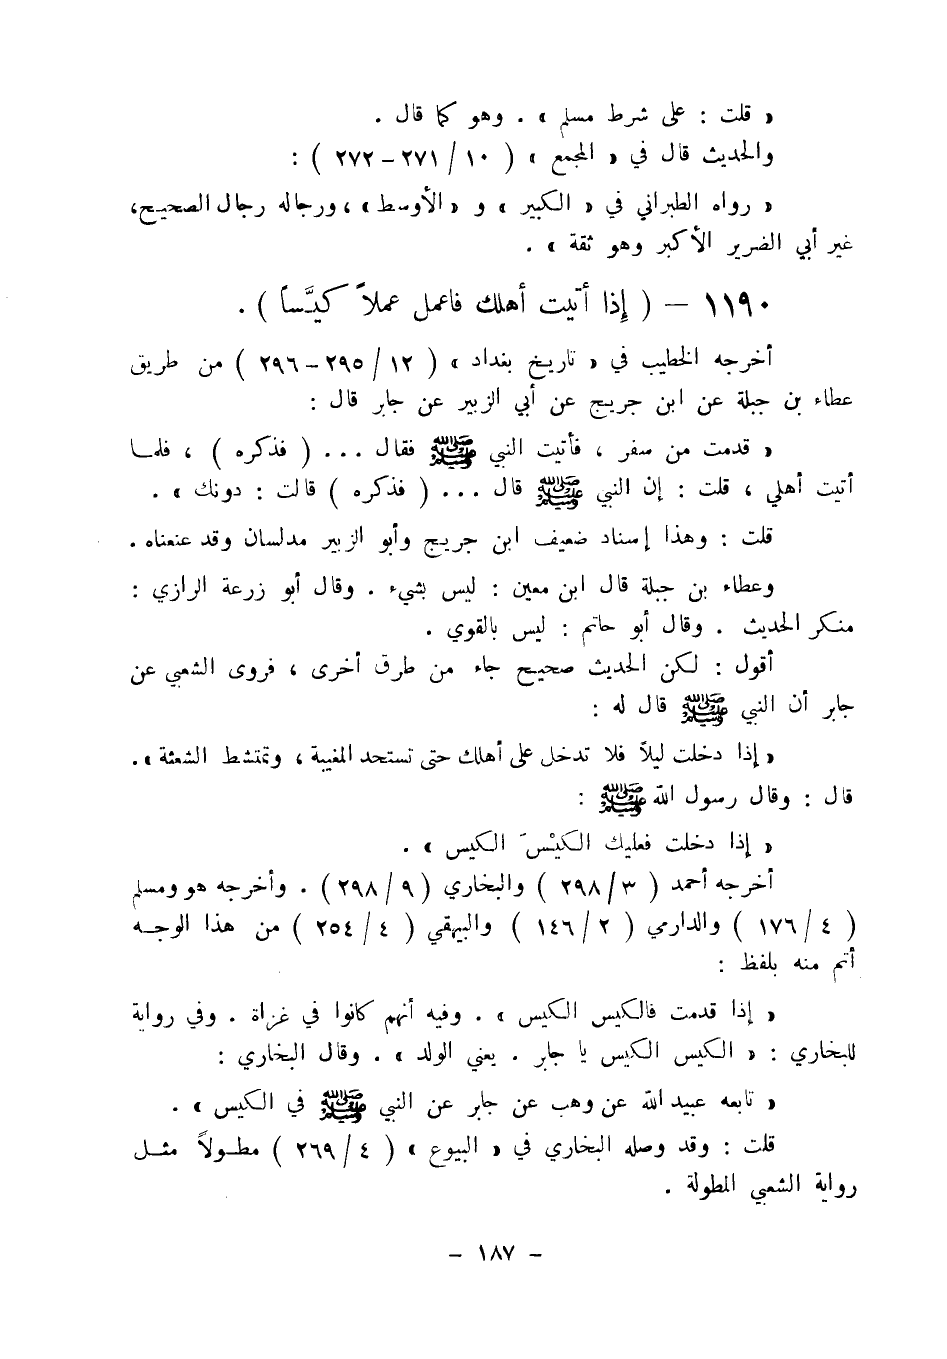 « قلت : على شرط مسلم » . وهو كما قال .
والحديث قال في « المجمع » ( ١٠ / ٢٧١ – ٢٧٢ ) :
« رواه الطبراني في « الكبير » و « الأوسط » ، ورجاله رجال الصحيح ،
غير أبي الضرير الأكبر وهو ثقة » .
١١٩٠ – ( إذا أتيت أهلك فاعمل عملاً كيَّساً ) .
أخرجه الخطيب في « تاريخ بغداد » ( ١٢ / ٢٩٥ – ٢٩٦ ) من طريق
عطاء بن جبلة عن ابن جريج عن أبي الزبير عن جابر قال :
« قدمت من سفر ، فأتيت النبي ﷺ فقال ... ( فذكره ) ، فلما
أتيت أهلي ، قلت : إن النبي ﷺ قال ... ( فذكره ) قالت : دونك » .
قلت : وهذا إسناد ضعيف ابن جريج وأبو الزبير مدلسان وقد عنعناه .
وعطاء بن جبلة قال ابن معين : ليس بشيء . وقال أبو زرعة الرازي :
منكر الحديث . وقال أبو حاتم : ليس بالقوي .
أقول : لكن الحديث صحيح جاء من طرق أخرى ، فروى الشعبي عن
جابر أن النبي ﷺ قال له :
« إذا دخلت ليلاً فلا تدخل على أهلك حتى تستحد المغيبة ، وتمتشط الشعثة » .
قال : وقال رسول الله ﷺ :
« إذا دخلت فعليك الكيْسَ الكيس » .
أخرجه أحمد ( ٣ / ٢٩٨ ) والبخاري ( ٩ / ٢٩٨ ) . وأخرجه هو ومسلم
( ٤ / ١٧٦ ) والدارمي ( ٢ / ١٤٦ ) والبيهقي ( ٤ / ٢٥٤ ) من هذا الوجه
أتم منه بلفظ :
« إذا قدمت فالكيس الكيس » . وفيه أنهم كانوا في غزاة . وفي رواية
للبخاري : « الكيس الكيس يا جابر . يعني الولد » . وقال البخاري :
« تابعه عبيد الله عن وهب عن جابر عن النبي ﷺ في الكيس » .
قلت : وقد وصله البخاري في « البيوع » ( ٤ / ٢٦٩ ) مطولاً مثل
رواية الشعبي المطولة .
– ١٨٧ –